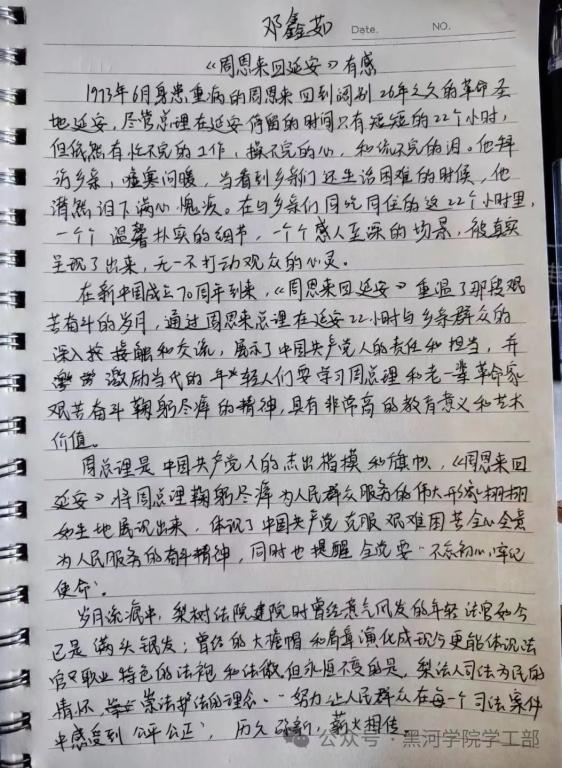 邓鑫茹
Date.
NO.
《周恩来回延安》有感
1973年6月身患重病的周恩来回到阔别26年之久的革命圣
地延安,尽管总理在延安停留的时间只有短短的22个小时,
但依然有忙不完的工作,操不完的心,和流不完的泪。他拜
访乡亲,嘘寒问暖,当看到乡亲们还生活困难的时候,他
潸然泪下满心愧疚。在与乡亲们同吃同住的这22个小时里,
一个个温馨朴实的细节,一个个感人至深的场景,被真实
呈现了出来,无一不打动观众的心灵。
在新中国成立70周年到来,《周恩来回延安》重温了那段艰
苦奋斗的岁月,通过周恩来总理在延安22小时与乡亲群众的
深入接触和交流,展示了中国共产党人的责任和担当,并
激励当代的年轻人们要学习周总理和老一辈革命家
艰苦奋斗鞠躬尽瘁的精神,具有非常高的教育意义和艺术
价值。
周总理是中国共产党人的杰出楷模和旗帜,《周恩来回
延安》将周总理鞠躬尽瘁为人民群众服务的伟大形象栩栩
如生地展现出来,体现了中国共产党克服艰难困苦全心全意
为人民服务的奋斗精神,同时也提醒全党要"不忘初心,牢记
使命"。
岁月流逝中,梨树法院建院时曾经意气风发的年轻法官如今
已是满头银发;曾经的大檐帽和肩章演化成现今更能体现法
官职业特色的法袍和法徽,但永恒不变的是,梨法人司法为民的
情怀,崇法护法的理念。"努力让人民群众在每一个司法案件
中感受到公平公正",历久弥新,薪火相传。
公众号·黑河学院学工部